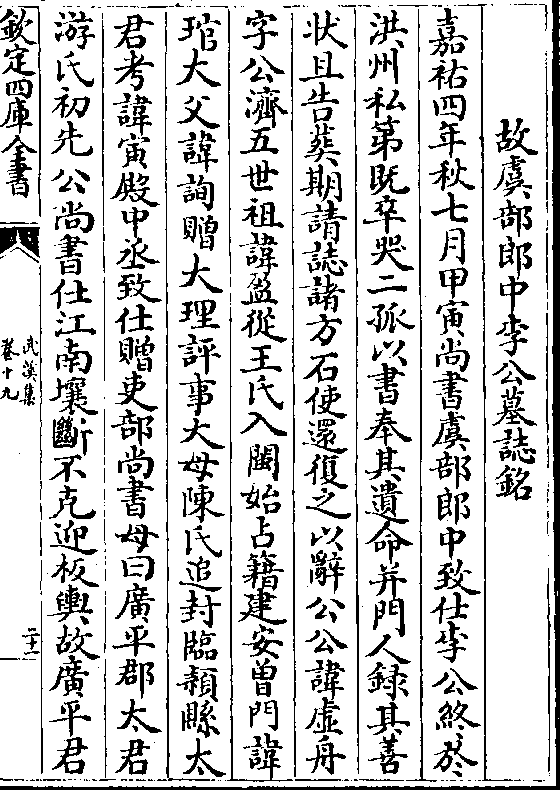 故虞部郎中李公墓誌銘
嘉祐四年秋七月甲寅尚書虞部郎中致仕李公終於
洪州私第既卒哭二孤以書奉其遺命并門人録其善
状且告葬期請誌諸方石使還復之以辭公公諱虚舟
字公濟五世祖諱盈從王氏入閩始占籍建安曽門諱
琯大父諱詢贈大理評事大母陳氏追封臨潁縣太
君考諱寅殿中丞致仕贈吏部尚書母曰廣平郡太君
游氏初先公尚書仕江南壤斷不克迎板輿故廣平君
欽定四庫全書
武溪集
卷十九
二十一